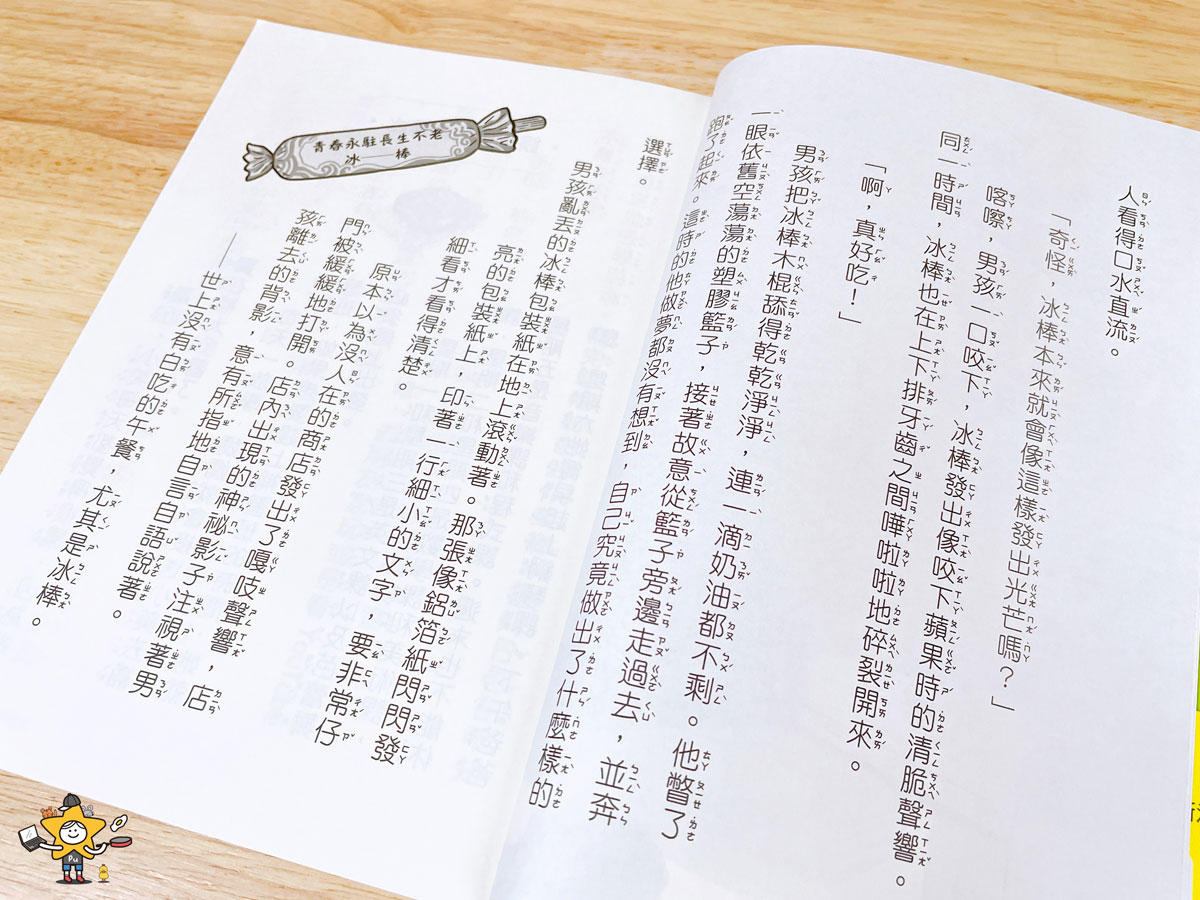 人看得口水直流。
「奇怪，冰棒本來就會像這樣發出光芒嗎？」
喀嚓，男孩一口咬下，冰棒發出像咬下蘋果時的清脆聲響。
同一時間，冰棒也在上下排牙齒之間嘩啦啦地碎裂開來。
「啊，真好吃！」
男孩把冰棒木棍舔得乾乾淨淨，連一滴奶油都不剩。他瞥了
一眼依舊空蕩蕩的塑膠籃子，接著故意從籃子旁邊走過去，並奔
跑了起來。這時的他做夢都沒有想到，自己究竟做出了什麼樣的
選擇。
青春永駐長生不老
冰棒
男孩亂丟的冰棒包裝紙在地上滾動著。那張像鋁箔紙閃閃發
亮的包裝紙上，印著一行細小的文字，要非常仔
細看才看得清楚。
原本以為沒人在的商店發出了嘎吱聲響，店
門被緩緩地打開。店內出現的神祕影子注視著男
孩離去的背影，意有所指地自言自語說著。
——世上沒有白吃的午餐，尤其是冰棒。
Pu